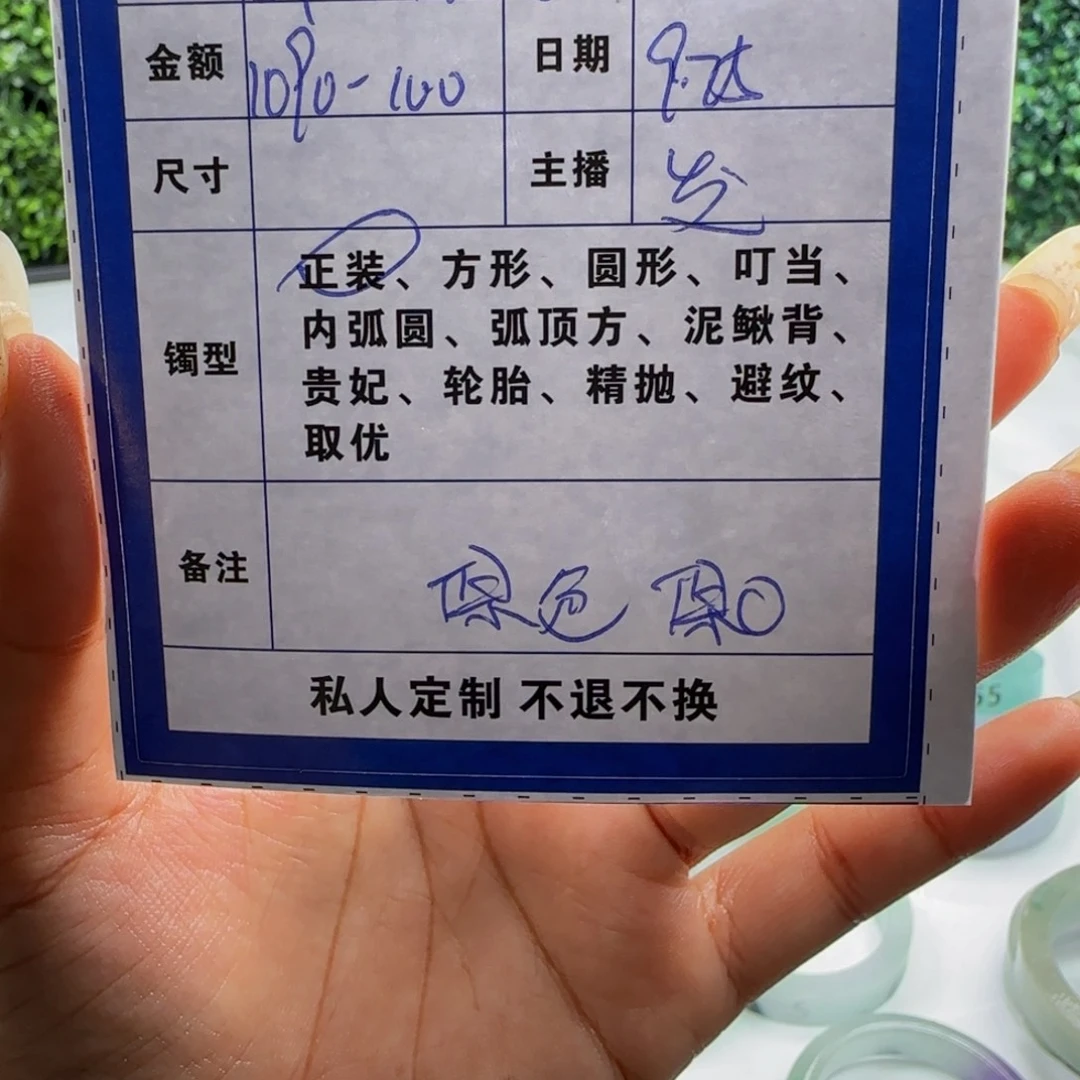 金额 1090-100 日期
尺寸 主播
镯型 正装、方形、圆形、叮当、
内弧圆、弧顶方、泥鳅背、
贵妃、轮胎、精抛、避纹、
取优
备注 保色 保
私人定制 不退不换
55